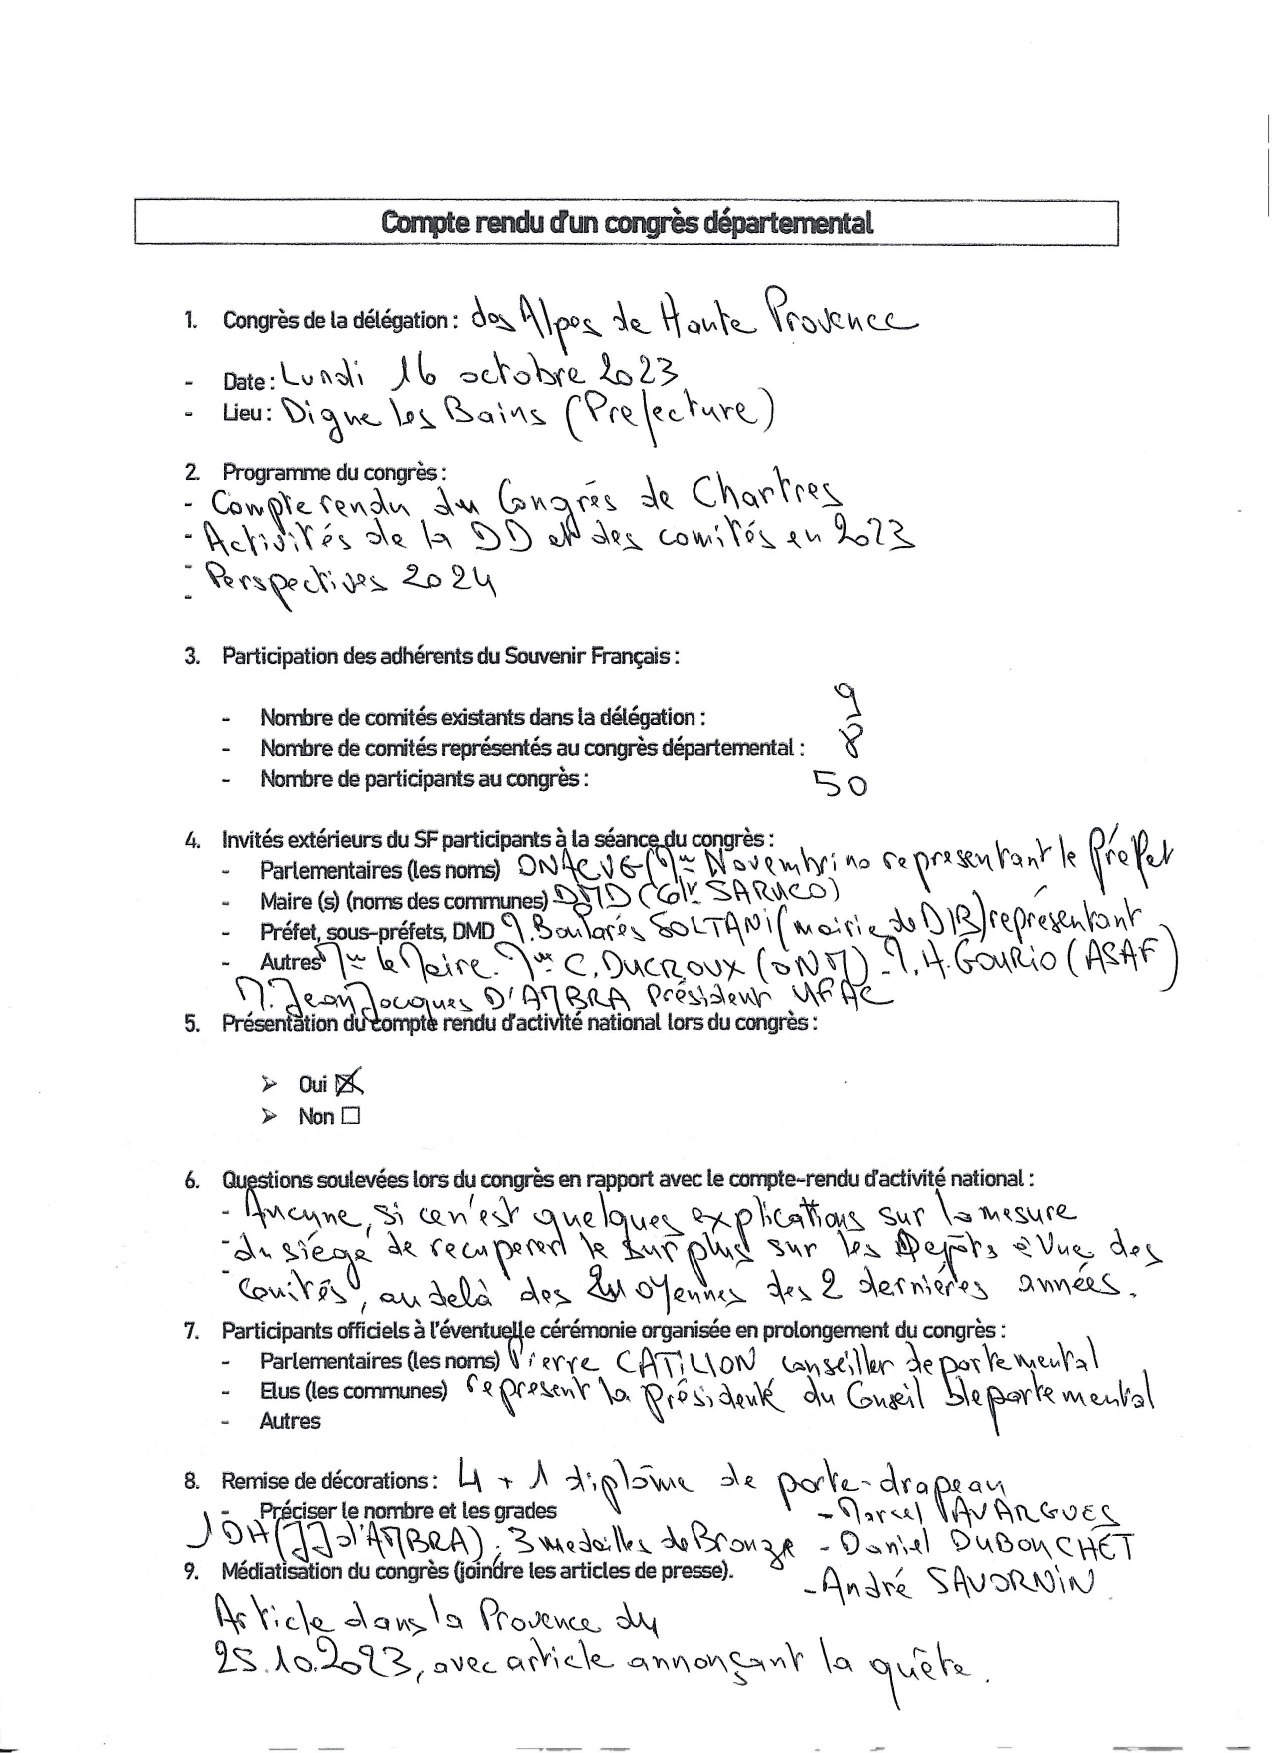 Compte rendu d'un congrès départemental
1. Congrès de la délégation : des Alpes de Haute Provence
- Date : Lundi 16 octobre 2023
- Lieu : Digne les Bains (Prefecture)
2. Programme du congrès :
- Compte rendu du Congrés de Chartres
- Activités de la DD et des comités en 2023
- Perspectives 2024
-
3. Participation des adhérents du Souvenir Français :
- Nombre de comités existants dans la délégation : 9
- Nombre de comités représentés au congrès départemental : 8
- Nombre de participants au congrès : 50
4. Invités extérieurs du SF participants à la séance du congrès :
- Parlementaires (les noms) ONACVG (Mme Novembrino representant le Préfet
- Maire (s) (noms des communes) DMD (Clr SARUCO)
- Préfet, sous-préfets, DMD M. Boularés SOLTANI (mairie de DLB) représentant
- Autres Mme le Maire. Mme C. DUCROUX (ONM) - M. H. GOURIO (ASAF)
M. Jean Jacques D'AMBRA Président UFAC
5. Présentation du compte rendu d'activité national lors du congrès :
➢ Oui ☒
➢ Non ☐
6. Questions soulevées lors du congrès en rapport avec le compte-rendu d'activité national :
- Aucune, si ce n'est quelques explications sur la mesure
- du siége de recuperer le surplus sur les Depôts à Vue des
- Comités, au delà des moyennes des 2 derniéres années.
7. Participants officiels à l'éventuelle cérémonie organisée en prolongement du congrès :
- Parlementaires (les noms) Pierre CATILLON conseiller departemental
- Elus (les communes) represent la Présidente du Conseil Departemental
- Autres
8. Remise de décorations : 4 + 1 diplôme de porte-drapeau
- Préciser le nombre et les grades - Marcel VAVARGUES
1 DH (JJ d'AMBRA), 3 medailles de Bronze - Daniel DUBONCHET
9. Médiatisation du congrès (joindre les articles de presse). - André SAVORNIN
Article dans la Provence du
25.10.2023, avec article annonçant la quête.